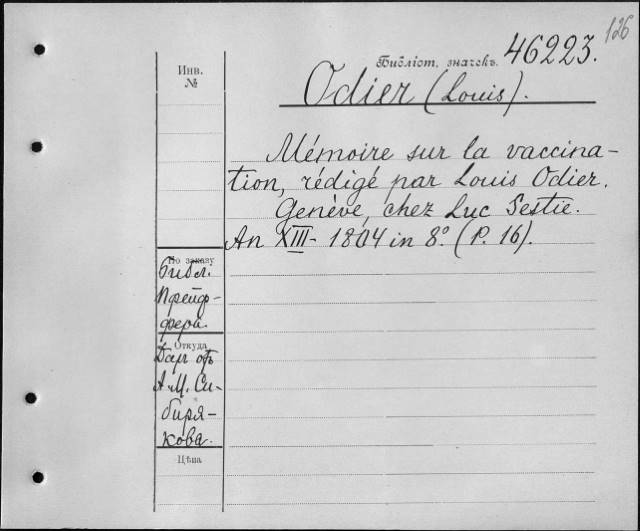 126
Инв.
№
Библіот. значекъ. 46223.
Odier (Louis).
Mémoire sur la vaccina-
tion, rédigé par Louis Odier.
Genève, chez Luc Sestié.
An XIII - 1804 in 8º. (P. 16).
По заказу
Библ.
Пфейф-
фера.
Откуда
Даръ отъ
А. М. Си-
биря-
кова.
Цѣна